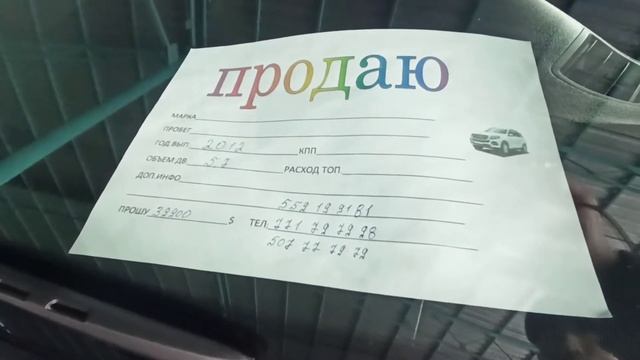 продаю
МАРКА
ПРОБЕГ
ГОД ВЫП. 2012 КПП
ОБЪЕМ ДВ. 5.7 РАСХОД ТОП.
ДОП.ИНФО
552 19 91 81
ПРОШУ 39900 $ ТЕЛ: 771 79 79 28
507 77 79 79